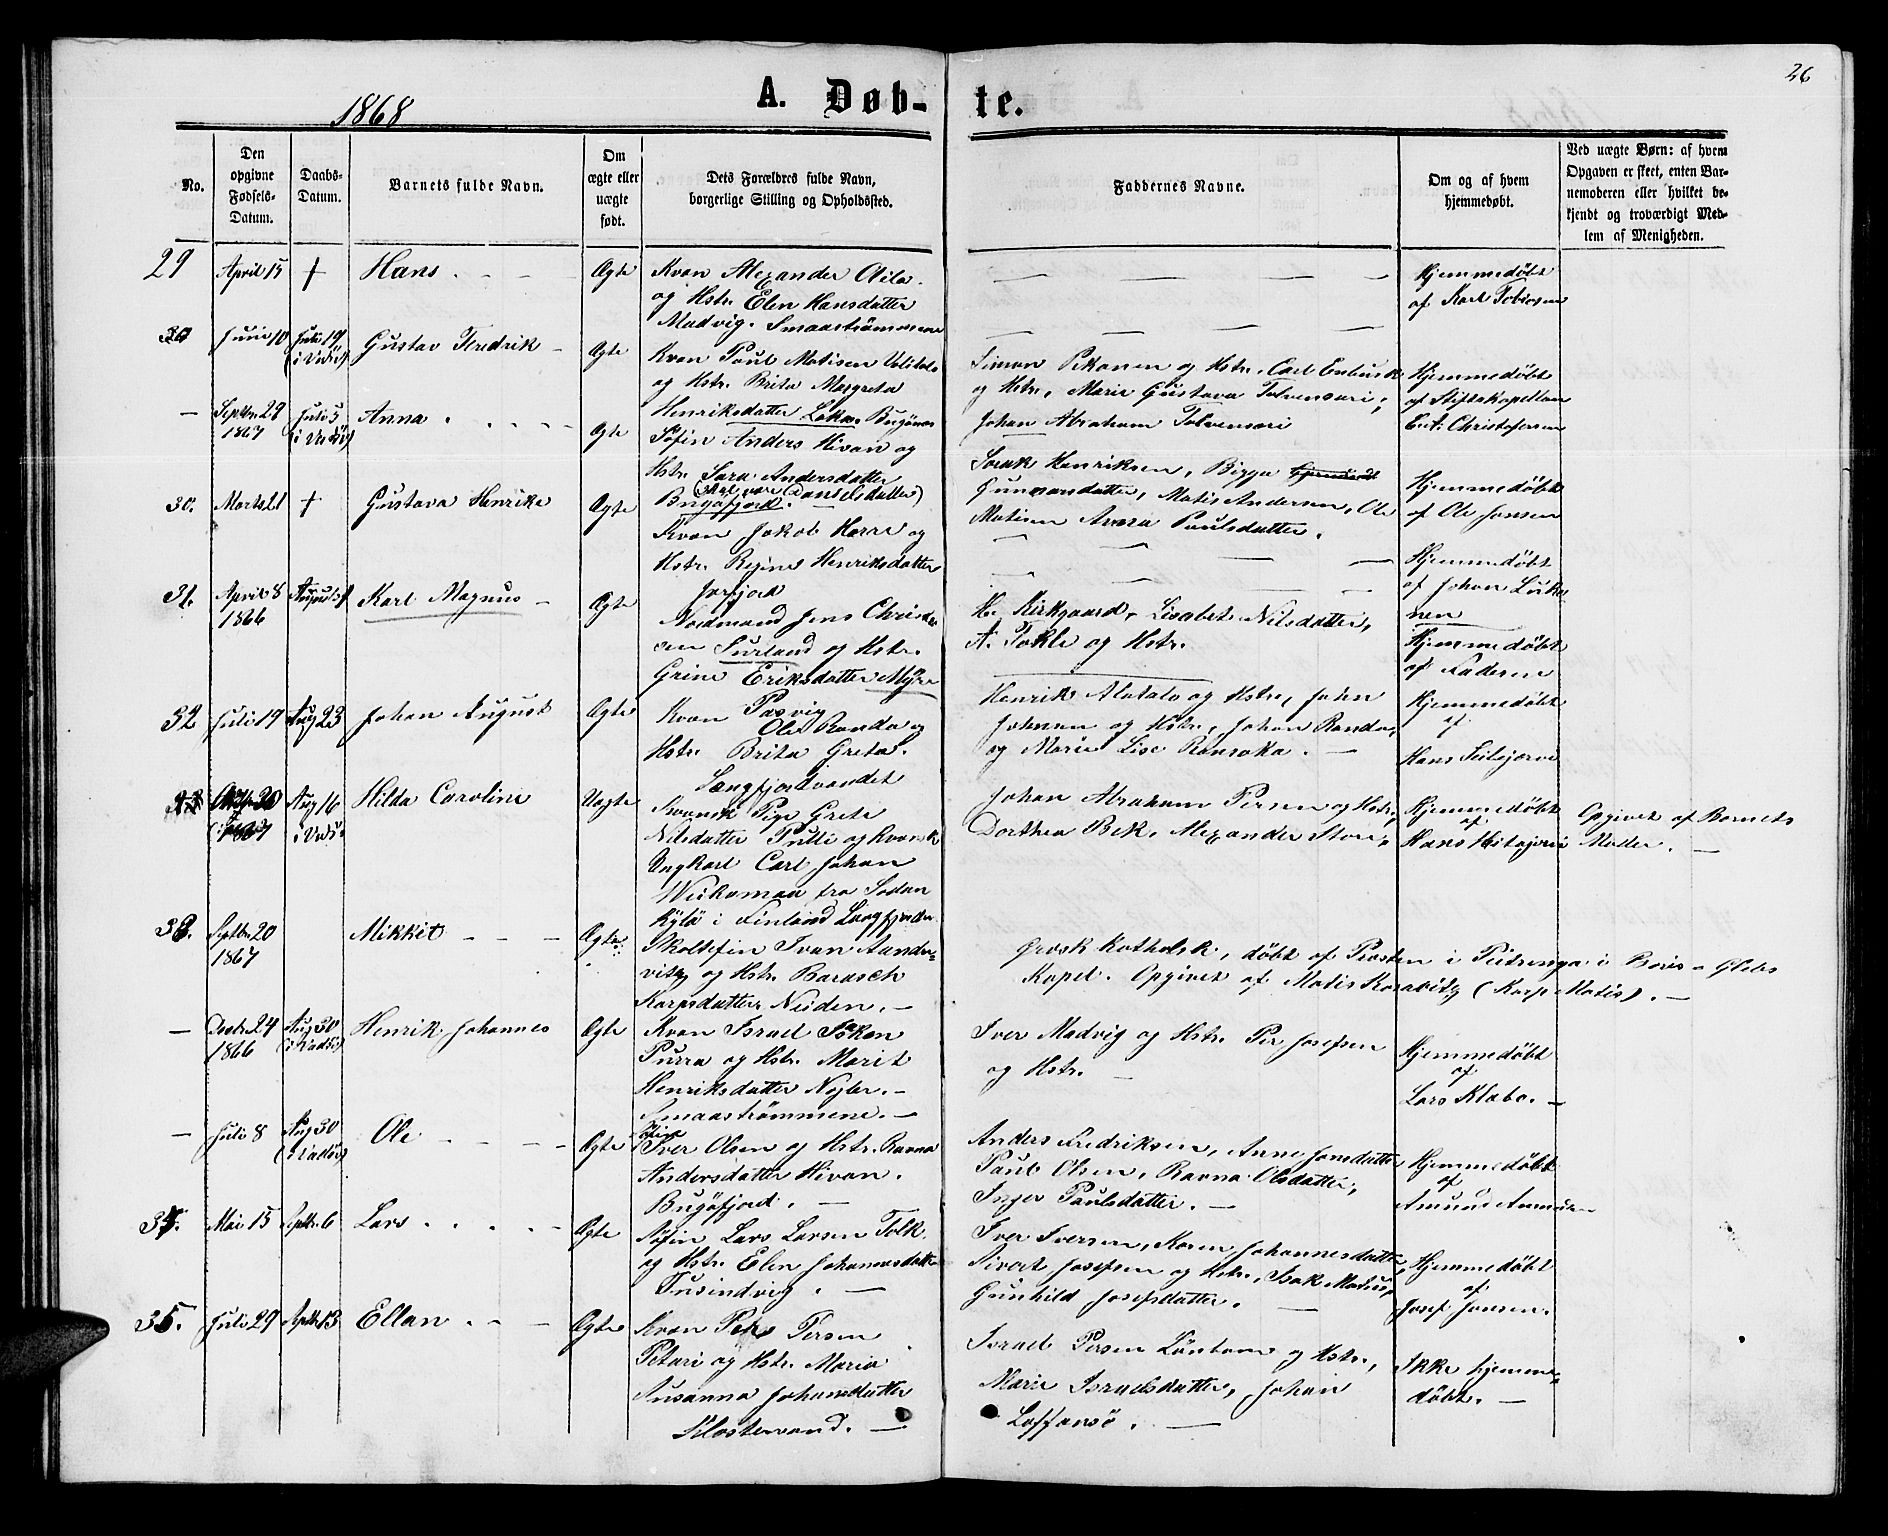 26
1868
A. Døb-te.
No.
Den opgivne Fødsels-Datum.
Daabs-Datum.
Barnets fulde Navn.
Om ægte eller uægte født.
Dets Forældres fulde Navn, borgerlige Stilling og Opholdssted.
Faddernes Navne.
Om og af hvem hjemmedøbt.
Ved uægte Børn: af hvem Opgaven er skeet, enten Barnemoderen eller hvilket bekjendt og troværdigt Medlem af Menigheden.
29 April 15 † Hans Ægte
Kvæn Alexander Aila
og Hstr. Elen Hansdatter
Madvig. Smaastrømmene
Hjemmedøbt
af Karl Tobiesen
30 Juni 10 Juli 19 (i Vadsø) Gustav Fredrik Ægte
Kvæn Paul Matisen
og Hstr. Brita Margreta
Henriksdatter Bugønæs
Simon Pekonen og Hstr. Carl Enbusk
og Hstr. Marie Gustava Tolvensari;
Johan Abraham Tolvensari
Hjemmedøbt
af Stiftskapellan
Christophersen
— Septbr. 29 1867 Juli 5 (i Vadsø) Anna Ægte
Søfin Anders Hivan og
Hstr. Sara Andersdatter
(skal være Danielsdatter)
Bugøfjord.
Isak Henriksen, Bigga
Gunnarsdatter, Matis Andersen, Ole
Matisen Anna Paulsdatter.
Hjemmedøbt
af Ole Jonsen
30. Marts 21 † Gustava Henrike Ægte
Kvæn Jakob Harri og
Hstr. Regine Henriksdatter
Jarfjord
Hjemmedøbt
af Johan
nen
31. April 8 1866 August Karl Magnus Ægte
Nordmand Jens Christen
sen Surland og Hstr.
Grine Eriksdatter Myre
Pasvig
H. Kirkgaard, Lisabet Nilsdatter,
A. Tokle og Hstr.
Hjemmedøbt
af Faderen
32 Juli 19 Aug 23 Johan August Ægte
Kvæn Ole Randa og
Hstr. Brita Greta.
Langfjordvandet
Henrik Alatalo og Hstr, John
Johnsen og Hstr, Johan Randa,
og Marie Lise Ransoka.
Hjemmedøbt
af
Hans Seitajervi
1867 Aug 16 i Vadsø Hilda Caroline Uægte
Kvænsk Pige Greta
Nilsdatter Pulli og kvænsk
Ungkarl Carl Johan
Wiikamaa fra Sodan
kylä i Finland Langfjorden
Johan Abraham Persen og Hstr,
Dorthea Bek, Alexander Stori,
Hjemmedøbt
af
Hans Hitajervi
Opgivet af Barnets
Moder.
33. Septbr. 20 1867 Mikkit Ægte
Skoltefin Ivan Aandre-
vitz og Hstr. Barasch
Karpsdatter Neiden.
Græsk katholsk, døbt af Præsten i Peisenga i Boris - Glebs
Kapel. Opgivet af Matis Karavitz (Karp Matis).
— Decbr. 24 1866 Aug 30 (i Vadsø) Henrik Johannes Ægte
Kvæn Israel Isken
Purra og Hstr. Marit
Henriksdatter Nojler.
Smaastrømmene.
Iver Madvig og Hstr. Per Josefsen
og Hstr.
Hjemmedøbt
af
Lars Klabo.
— Juli 8 Aug 30 (i Vadsø) Ole Ægte
Iver Olsen og Hstr. Ravna
Andersdatter Hivan.
Bugøfjord.
Anders Fredriksen, Anne Jonsdatter
Paul Olsen, Ravna Olsdatter,
Inger Paulsdatter.
Hjemmedøbt
af
Amund Amundsen
34. Mai 15 Septbr. 6 Lars Ægte
Søfin Lars Larsen Tolk
og Hstr. Elen Johannesdatter
Tusindvig.
Iver Iversen, Karen Johannesdatter,
Sivert Josefsen og Hstr. Isak Matius,
Gunhild Josefsdatter.
Hjemmedøbt
af
Josef Jonsen.
35. Juli 29 Septbr 13 Ellan Ægte
Kvæn Peter Persen
Petari og Hstr. Maria
Susanna Johansdatter
Klostervand.
Israel Persen og Hstr,
Marie Israelsdatter, Johan
Loffansø.
Ikke hjemme-
døbt.